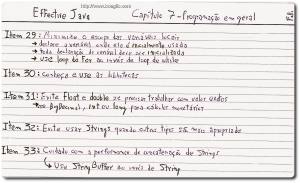 http://www.loiane.com
Effective Java Capítulo 7 - Programação em geral
Item 29: Minimize o escopo das variáveis locais
→ declare a variável onde ela é inicialmente usada
→ toda declaração de variável deve ser inicializada
→ use loop do for ao invés de loop do while
Item 30: Conheça e use as bibliotecas
Item 31: Evite Float e double se precisar trabalhar com valor exatos
→ BigDecimal, int ou long para cálculos monetários
Item 32: Evite usar Strings quando outros tipos são mais apropriado
Item 33: Cuidado com a performance de concatenação de Strings
↳ Use StringBuffer ao invés de String